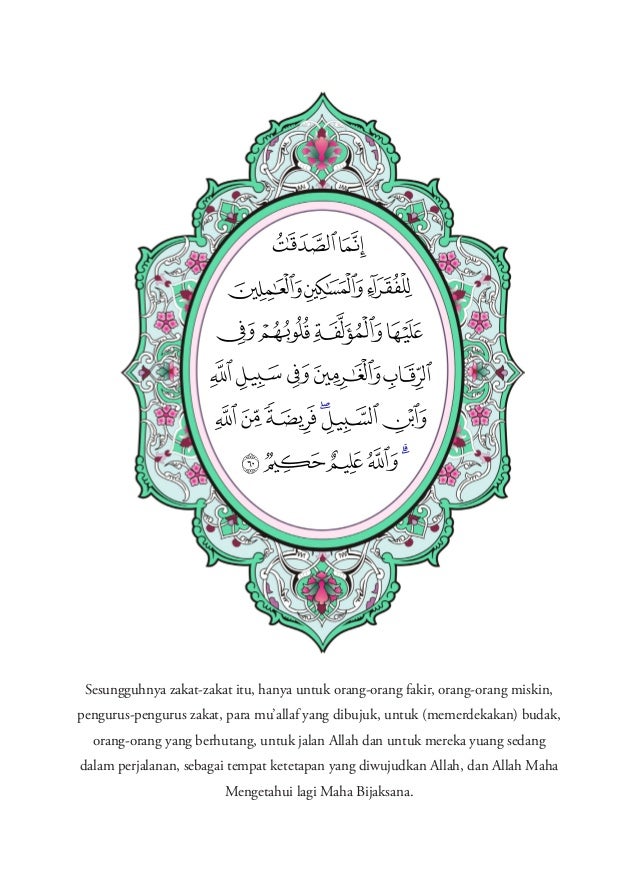 إِنَّمَا ٱلصَّدَقَٰتُ
لِلْفُقَرَآءِ وَٱلْمَسَٰكِينِ وَٱلْعَٰمِلِينَ
عَلَيْهَا وَٱلْمُؤَلَّفَةِ قُلُوبُهُمْ وَفِى
ٱلرِّقَابِ وَٱلْغَٰرِمِينَ وَفِى سَبِيلِ ٱللَّهِ
وَٱبْنِ ٱلسَّبِيلِ ۖ فَرِيضَةً مِّنَ ٱللَّهِ
ۗ وَٱللَّهُ عَلِيمٌ حَكِيمٌ ٦٠
Sesungguhnya zakat-zakat itu, hanya untuk orang-orang fakir, orang-orang miskin,
pengurus-pengurus zakat, para mu’allaf yang dibujuk, untuk (memerdekakan) budak,
orang-orang yang berhutang, untuk jalan Allah dan untuk mereka yuang sedang
dalam perjalanan, sebagai tempat ketetapan yang diwujudkan Allah, dan Allah Maha
Mengetahui lagi Maha Bijaksana.